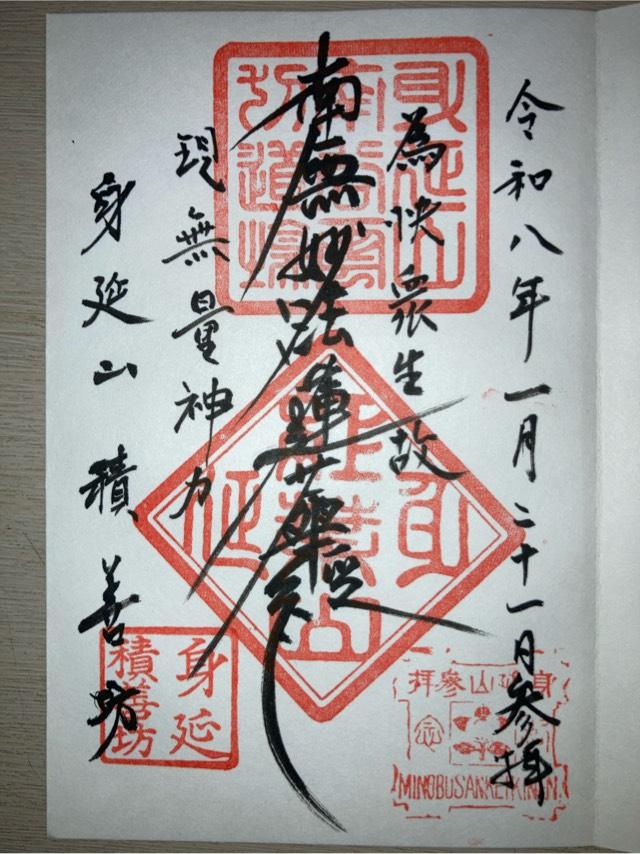 令和八年一月二十一日参拝
為悦衆生故
南無妙法蓮華経
現無量神力
身延山 積善坊
身延山
身延
積善坊
身延山參拝